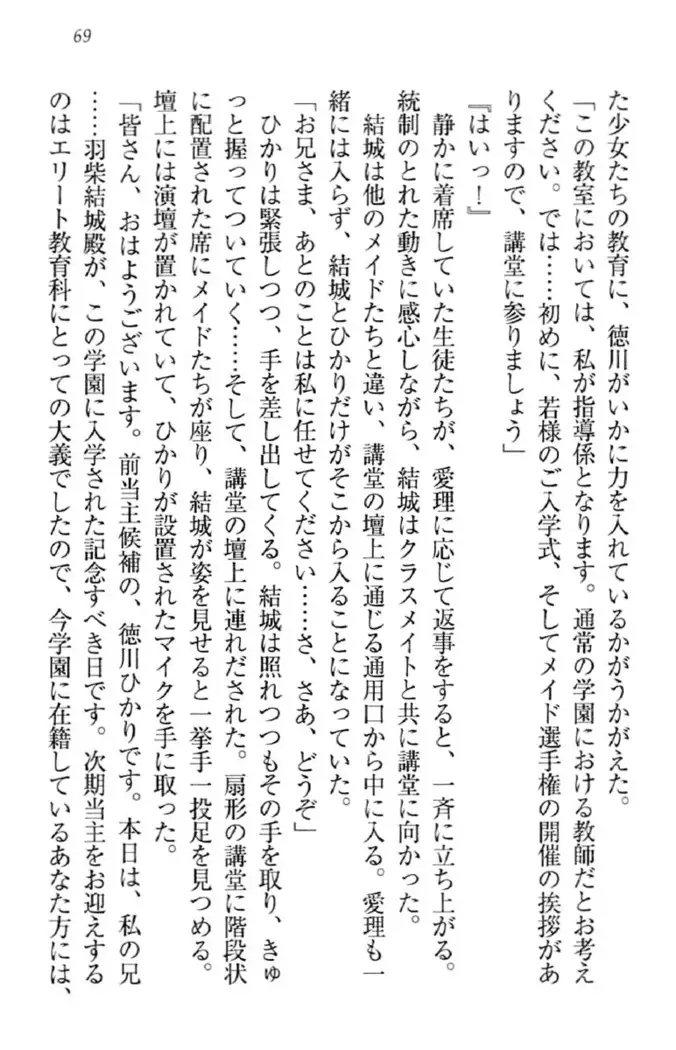 69
た少女たちの教育に、徳川がいかに力を入れているかがうかがえた。
「この教室においては、私が指導係となります。通常の学園における教師だとお考え
ください。では……初めに、若様のご入学式、そしてメイド選手権の開催の挨拶があ
りますので、講堂に参りましょう」
『はいっ！』
静かに着席していた生徒たちが、愛理に応じて返事をすると、一斉に立ち上がる。
統制のとれた動きに感心しながら、結城はクラスメイトと共に講堂に向かった。
結城は他のメイドたちと違い、講堂の壇上に通じる通用口から中に入る。愛理も一
緒には入らず、結城とひかりだけがそこから入ることになっていた。
「お兄さま、あとのことは私に任せてください……さ、さあ、どうぞ」
ひかりは緊張しつつ、手を差し出してくる。結城は照れつつもその手を取り、きゅ
っと握ってついていく……そして、講堂の壇上に連れだされた。扇形の講堂に階段状
に配置された席にメイドたちが座り、結城が姿を見せると一挙手一投足を見つめる。
壇上には演壇が置かれていて、ひかりが設置されたマイクを手に取った。
「皆さん、おはようございます。前当主候補の、徳川ひかりです。本日は、私の兄
……羽柴結城殿が、この学園に入学された記念すべき日です。次期当主をお迎えする
のはエリート教育科にとっての大義でしたので、今学園に在籍しているあなた方には、